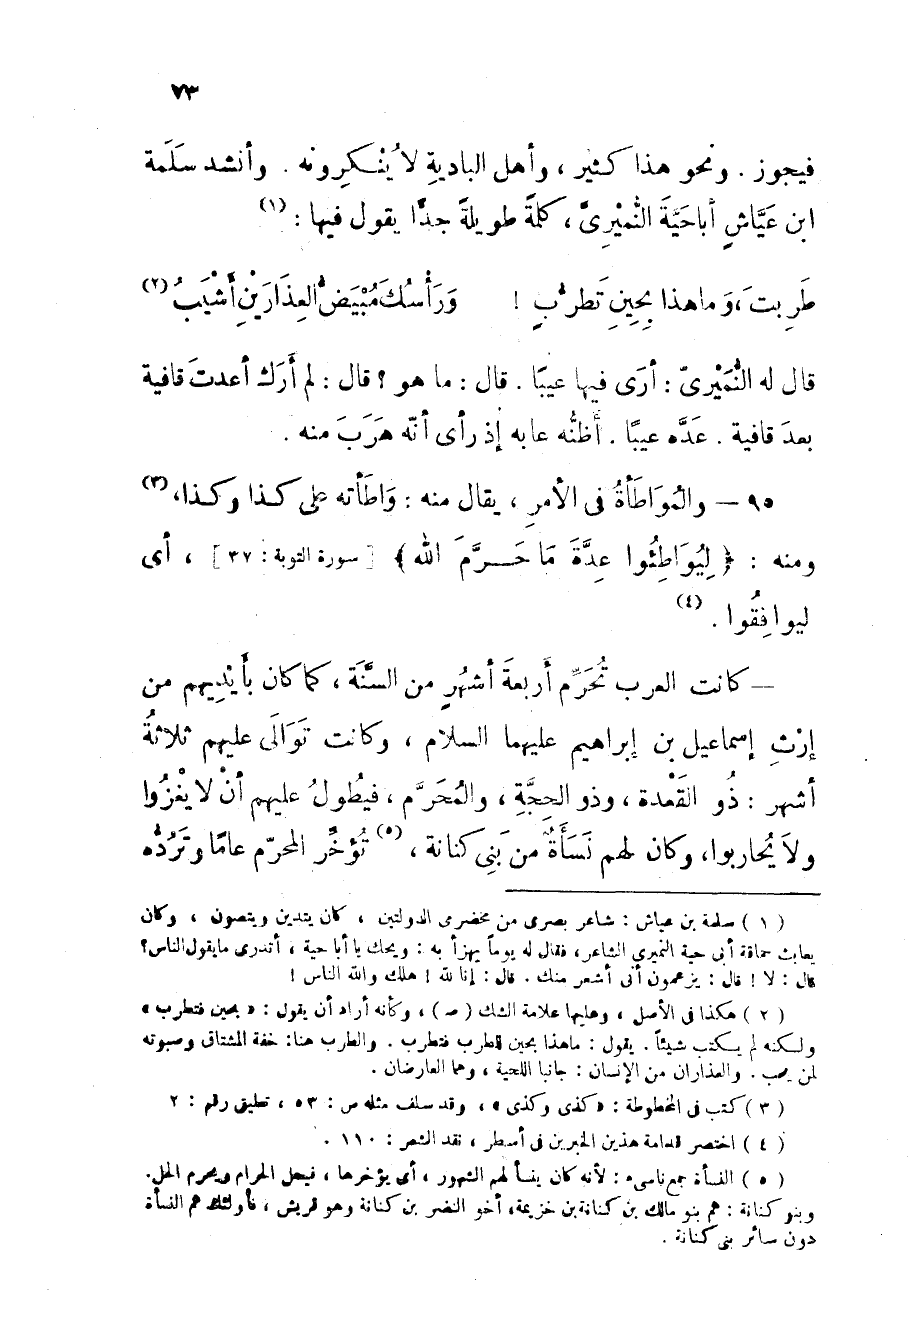 ٧٣
فيجوز . ونحو هذا كثير ، وأهل الباديةِ لا يُنْكِرونه . وأنشد سَلَمة
ابن عَيَّاشٍ أباحَيَّةَ النُّمَيْرِىَّ ، كلمةً طويلةً جدًّا يقول فيها : (١)
طَرِبتَ ، وَماهذا بِحِينِ تَطرُّبٍ ! وَرَأْسُكَ مُبْيَضُّ العِذَارَيْنِ أَشْيَبُ (٢)
قال له النُّمَيْرىّ : أرَى فيها عيبًا . قال : ما هو ؟ قال : لم أَرَكَ أعدتَ قافية
بعدَ قافية . عَدَّه عيبًا . أَظنُّه عابه إذ رأى أنّه هَرَبَ منه .
٩٥ — والمُوَاطَأَةُ فى الأمرِ ، يقال منه : وَاطَأْته على كذا وكذا ، (٣)
ومنه : ﴿ لِيُوَاطِئُوا عِدَّةَ مَا حَرَّمَ اللهُ ﴾ [ سورة التوبة : ٣٧ ] ، أى
ليوافِقُوا . (٤)
— كانت العرب تُحَرِّم أربعةَ أشهُرٍ من السَّنَة ، كما كان بأيْدِيهم من
إرْثِ إسماعيل بن إبراهيم عليهما السلام ، وكانت تَوَالَى عليهم ثلاثةُ
أشهر : ذُو القَعْدة ، وذو الحِجَّةِ ، والمُحَرَّم ، فيطُولُ عليهم أنْ لا يغْزُوا
ولاَ يُحاربوا ، وكان لهم نَسَأَةٌ من بَنِى كنانة ، (٥) تُؤخِّر المحرّم عامًا وتَرُدُّه
( ١ ) سلمة بن عياش : شاعر بصرى من مخضرمى الدولتين ، كان يتدين ويتصون ، وكان
يعابث حماقة أبى حية النميرى الشاعر ، فقال له يوماً يهزأ به : ويحك يا أبا حية ، أتدرى مايقول الناس ؟
قال : لا ! قال : يزعمون أنى أشعر منك . قال : إنا لله ! هلك والله الناس !
( ٢ ) هكذا فى الأصل ، وعليها علامة الشك ( صـ ) ، وكأنه أراد أن يقول : « بحين فتطرب »
ولكنه لم يكتب شيئاً . يقول : ماهذا بحين طرب فتطرب . والطرب هنا : خفة المشتاق وصبوته
لمن يحب . والعذاران من الإنسان : جانبا اللحية ، وهما العارضان .
( ٣ ) كتب فى المخطوطة : « كذى وكذى » ، وقد سلف مثله ص : ٥٣ ، تعليق رقم : ٢
( ٤ ) اختصر قدامة هذين الخبرين فى أسطر ، نقد الشعر : ١١٠ .
( ٥ ) النسأة جمع ناسىء : لأنه كان ينسأ لهم الشهور ، أى يؤخرها ، فيحل الحرام ويحرم الحل .
وبنو كنانة : هم بنو مالك بن كنانة بن خزيمة ، أخو النضر بن كنانة وهو قريش ، فأولئك هم النسأة
دون سائر بنى كنانة .